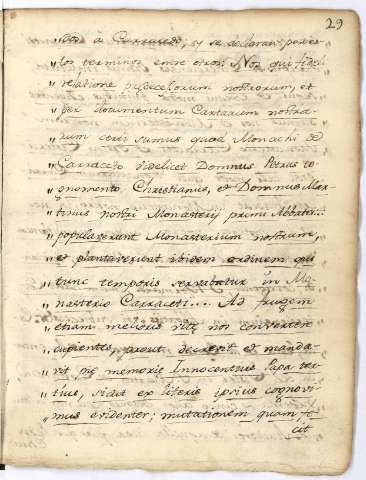 29
dos à Carracedo, y se declaran por es-
„ tos terminos entre otros: Nos qui fideli
„ relatione predecessorum nostrorum, et
„ per documentum Cartarum nostra-
„ rum certi sumus quod Monachi de
„ Carracedo videlicet Domnus Petrus co-
„ gnomento Christianus, et Domnus Mar-
„ tinus nostri Monasterij primi Abbates...
„ populaverunt Monasterium nostrum,
„ et plantaverunt ibidem ordinem qui
„ tunc temporis servabatur in Mo-
„ nasterio Carraceti.... Ad frugem
„ etiam melioris vitę nos converten
„ cupientes, prout decrevit et manda-
„ vit pię memorię Innocentius Papa ter-
„ tius, sicut ex literis ipsius cognovi-
„ mus evidenter; mutationem quam fe
cit